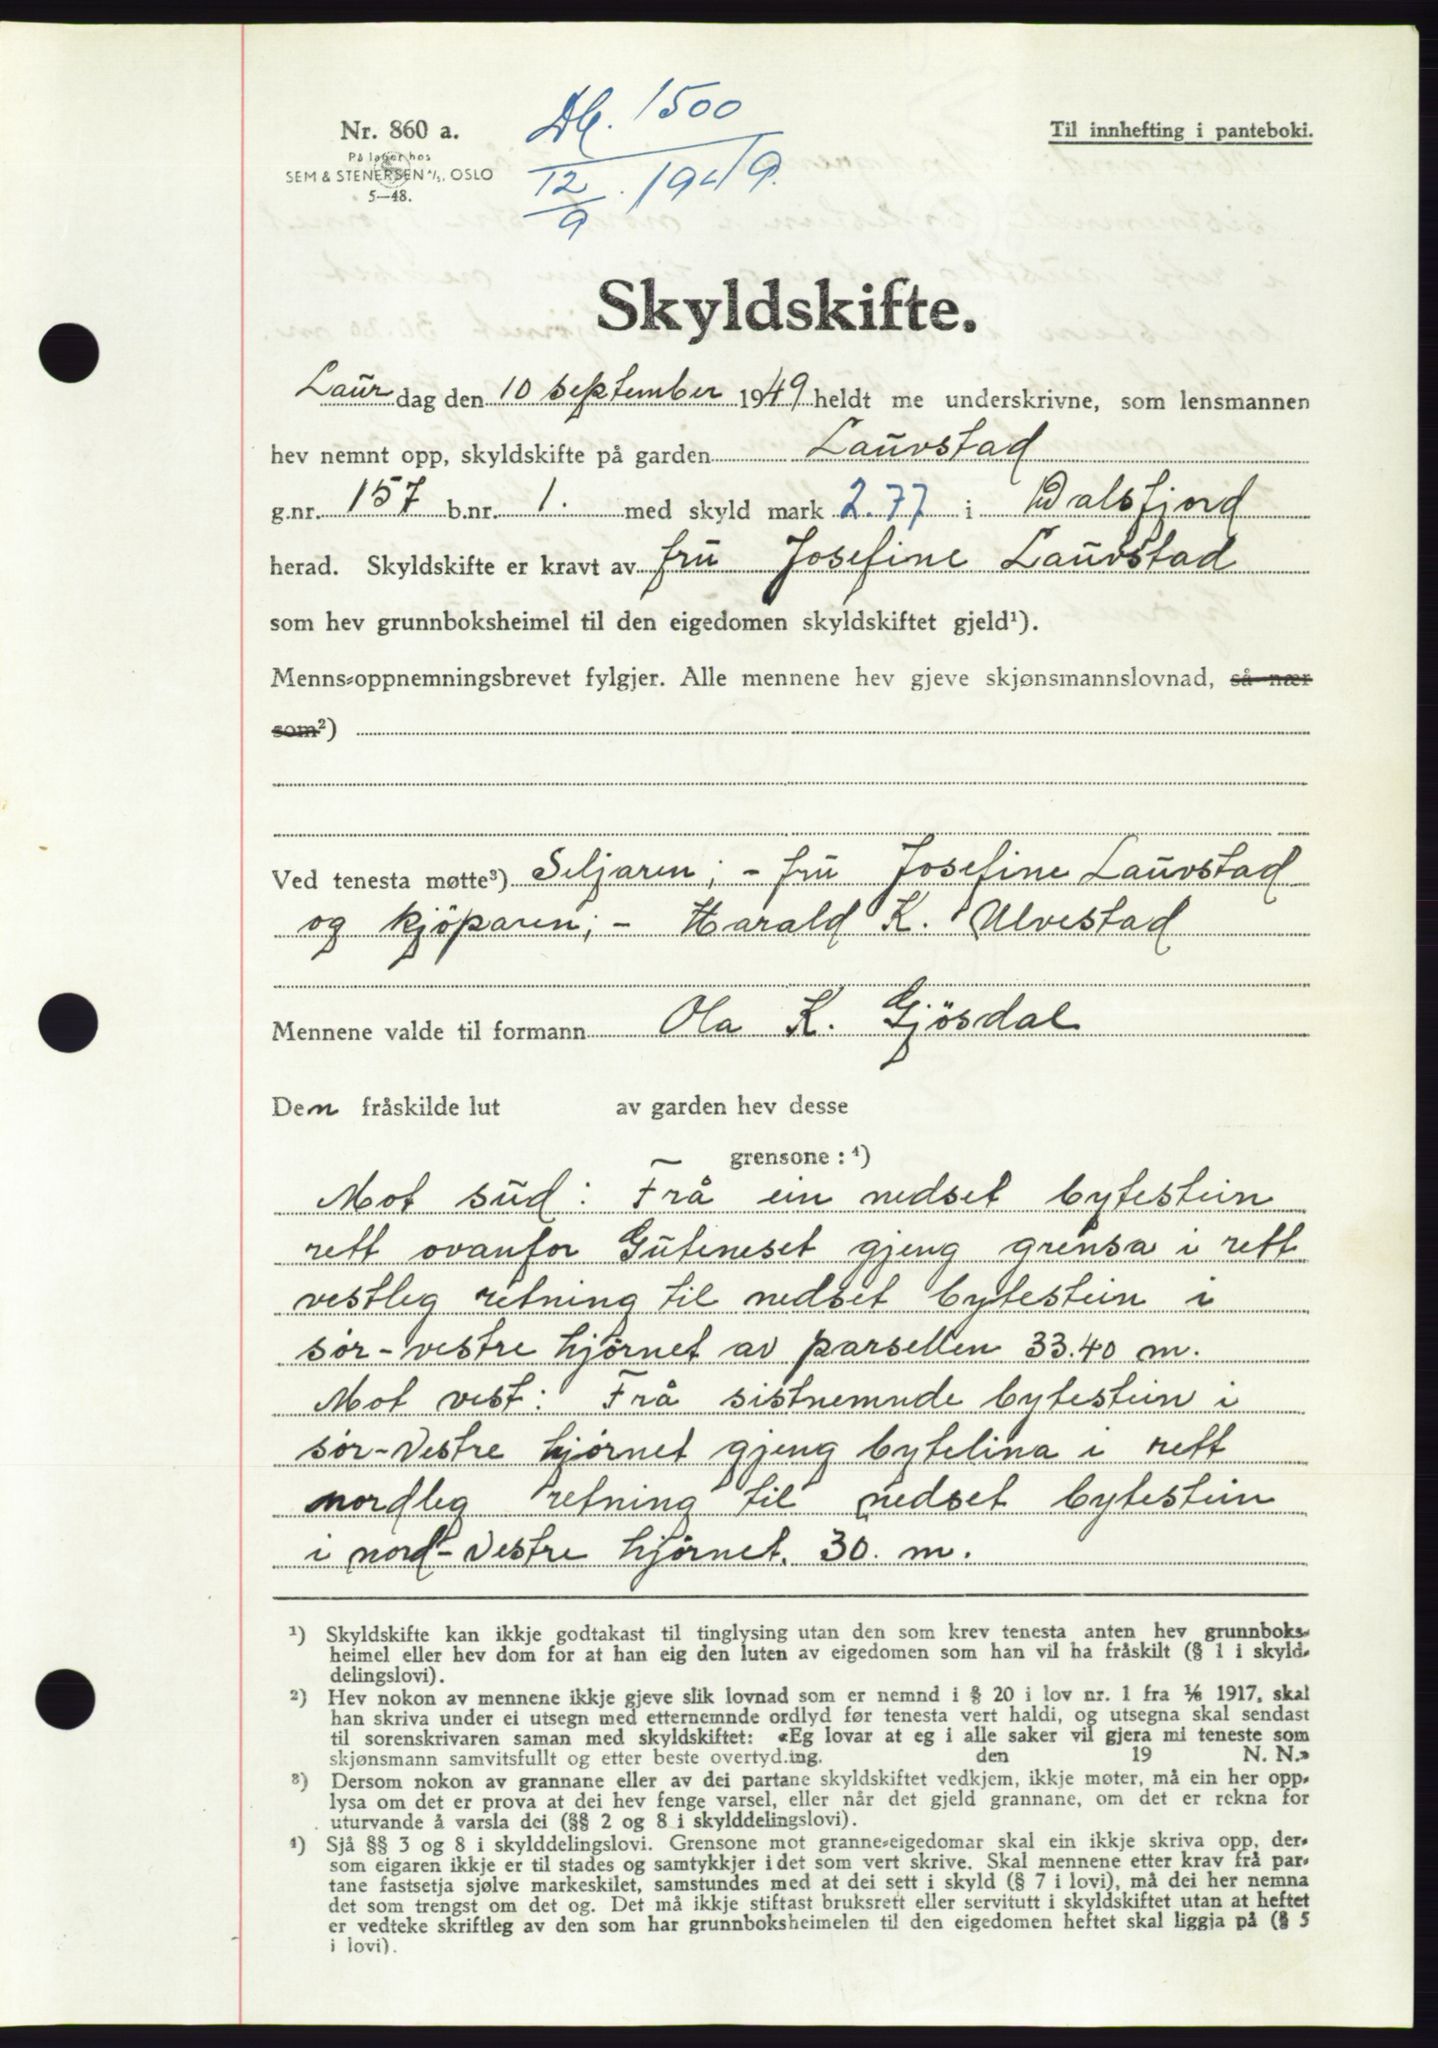 Nr. 860 a.
På lager hos
SEM & STENERSEN A/S, OSLO
5—48.
Db. 1500
12/9. 1949.
Til innhefting i panteboki.
Skyldskifte.
Laur dag den 10 september 1949 heldt me underskrivne, som lensmannen
hev nemnt opp, skyldskifte på garden Lauvstad
g.nr. 157 b.nr. 1. med skyld mark 2.77 i Dalsfjord
herad. Skyldskifte er kravt av fru Josefine Lauvstad
som hev grunnboksheimel til den eigedomen skyldskiftet gjeld¹).
Menns-oppnemningsbrevet fylgjer. Alle mennene hev gjeve skjønsmannslovnad, så nær
som²)
Ved tenesta møtte³) Seljaren; - fru Josefine Lauvstad
og kjöparen; - Harald K. Ulvestad
Mennene valde til formann Ola K. Gjösdal
Den fråskilde lut av garden hev desse
grensone: ⁴)
Mot sud: Frå ein nedset bytestein
rett ovanfor Guteneset gjeng grensa i rett
vestleg retning til nedset bytestein i
sør-vestre hjørnet av parsellen 33.40 m.
Mot vest: Frå sistnemnde bytestein i
sør-vestre hjørnet gjeng bytelina i rett
nordleg retning til nedset bytestein
i nord-vestre hjørnet. 30. m.
¹) Skyldskifte kan ikkje godtakast til tinglysing utan den som krev tenesta anten hev grunnboks-
heimel eller hev dom for at han eig den luten av eigedomen som han vil ha fråskilt (§ 1 i skyld-
delingslovi).
²) Hev nokon av mennene ikkje gjeve slik lovnad som er nemnd i § 20 i lov nr. 1 fra 1/6 1917, skal
han skriva under ei utsegn med etternemnde ordlyd før tenesta vert haldi, og utsegna skal sendast
til sorenskrivaren saman med skyldskiftet: «Eg lovar at eg i alle saker vil gjera mi teneste som
skjønsmann samvitsfullt og etter beste overtyd.ing. den 19 N. N.»
³) Dersom nokon av grannane eller av dei partane skyldskiftet vedkjem, ikkje møter, må ein her opp-
lysa om det er prova at dei hev fenge varsel, eller når det gjeld grannane, om det er rekna for
uturvande å varsla dei (§§ 2 og 8 i skylddelingslovi).
⁴) Sjå §§ 3 og 8 i skylddelingslovi. Grensone mot granne-eigedomar skal ein ikkje skriva opp, der-
som eigaren ikkje er til stades og samtykkjer i det som vert skrive. Skal mennene etter krav frå par-
tane fastsetja sjølve markeskilet, samstundes med at dei sett i skyld (§ 7 i lovi), må dei her nemna
det som trengst om det og. Det må ikkje stiftast bruksrett eller servitutt i skyldskiftet utan at heftet
er vedteke skriftleg av den som har grunnboksheimelen til den eigedomen heftet skal liggja på (§ 5
i lovi).